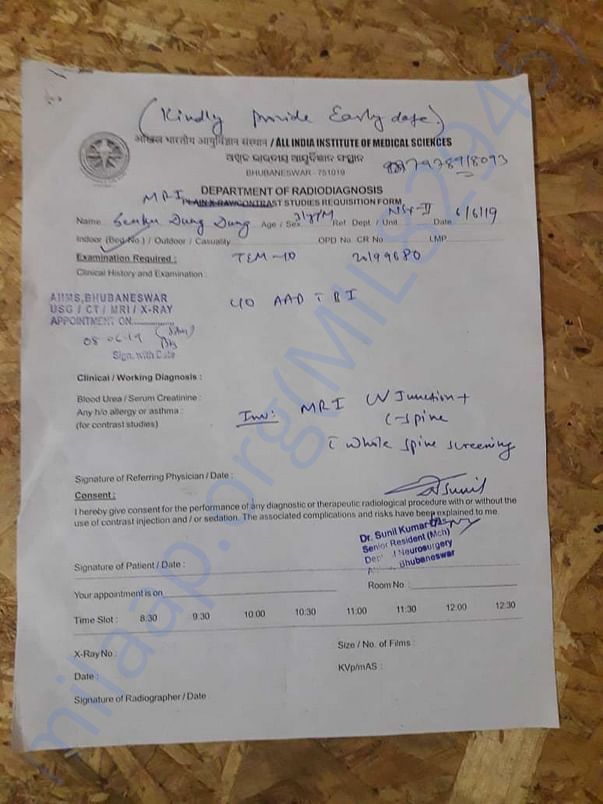 (Kindly provide Early date)
अखिल भारतीय आयुर्विज्ञान संस्थान / ALL INDIA INSTITUTE OF MEDICAL SCIENCES
BHUBANESWAR - 751019
DEPARTMENT OF RADIODIAGNOSIS
MRI
PLAIN X-RAY/CONTRAST STUDIES REQUISITION FORM
Name Dung Dung Age / Sex Ref Dept / Unit NSx-II Date 6/6/19
Indoor (Bed No.) / Outdoor / Casualty OPD No. CR No LMP
Examination Required : TEM-10
Clinical History and Examination :
AIIMS, BHUBANESWAR
USG / CT / MRI / X-RAY
APPOINTMENT ON
08.06.19
Sign. with Date
Clinical / Working Diagnosis :
Blood Urea / Serum Creatinine :
Any h/o allergy or asthma :
(for contrast studies)
Inv: MRI CV Junction +
C-spine
whole spine screening
Signature of Referring Physician / Date :
Consent :
I hereby give consent for the performance of any diagnostic or therapeutic radiological procedure with or without the
use of contrast injection and / or sedation. The associated complications and risks have been explained to me.
Dr. Sunil Kumar
Senior Resident (Mch)
Neurosurgery
Bhubaneswar
Signature of Patient / Date :
Your appointment is on Room No :
Time Slot : 8:30 9:30 10:00 10:30 11:00 11:30 12:00 12:30
X-Ray No : Size / No. of Films :
Date : KVp/mAS :
Signature of Radiographer / Date :
milaap.org(MIL82945)